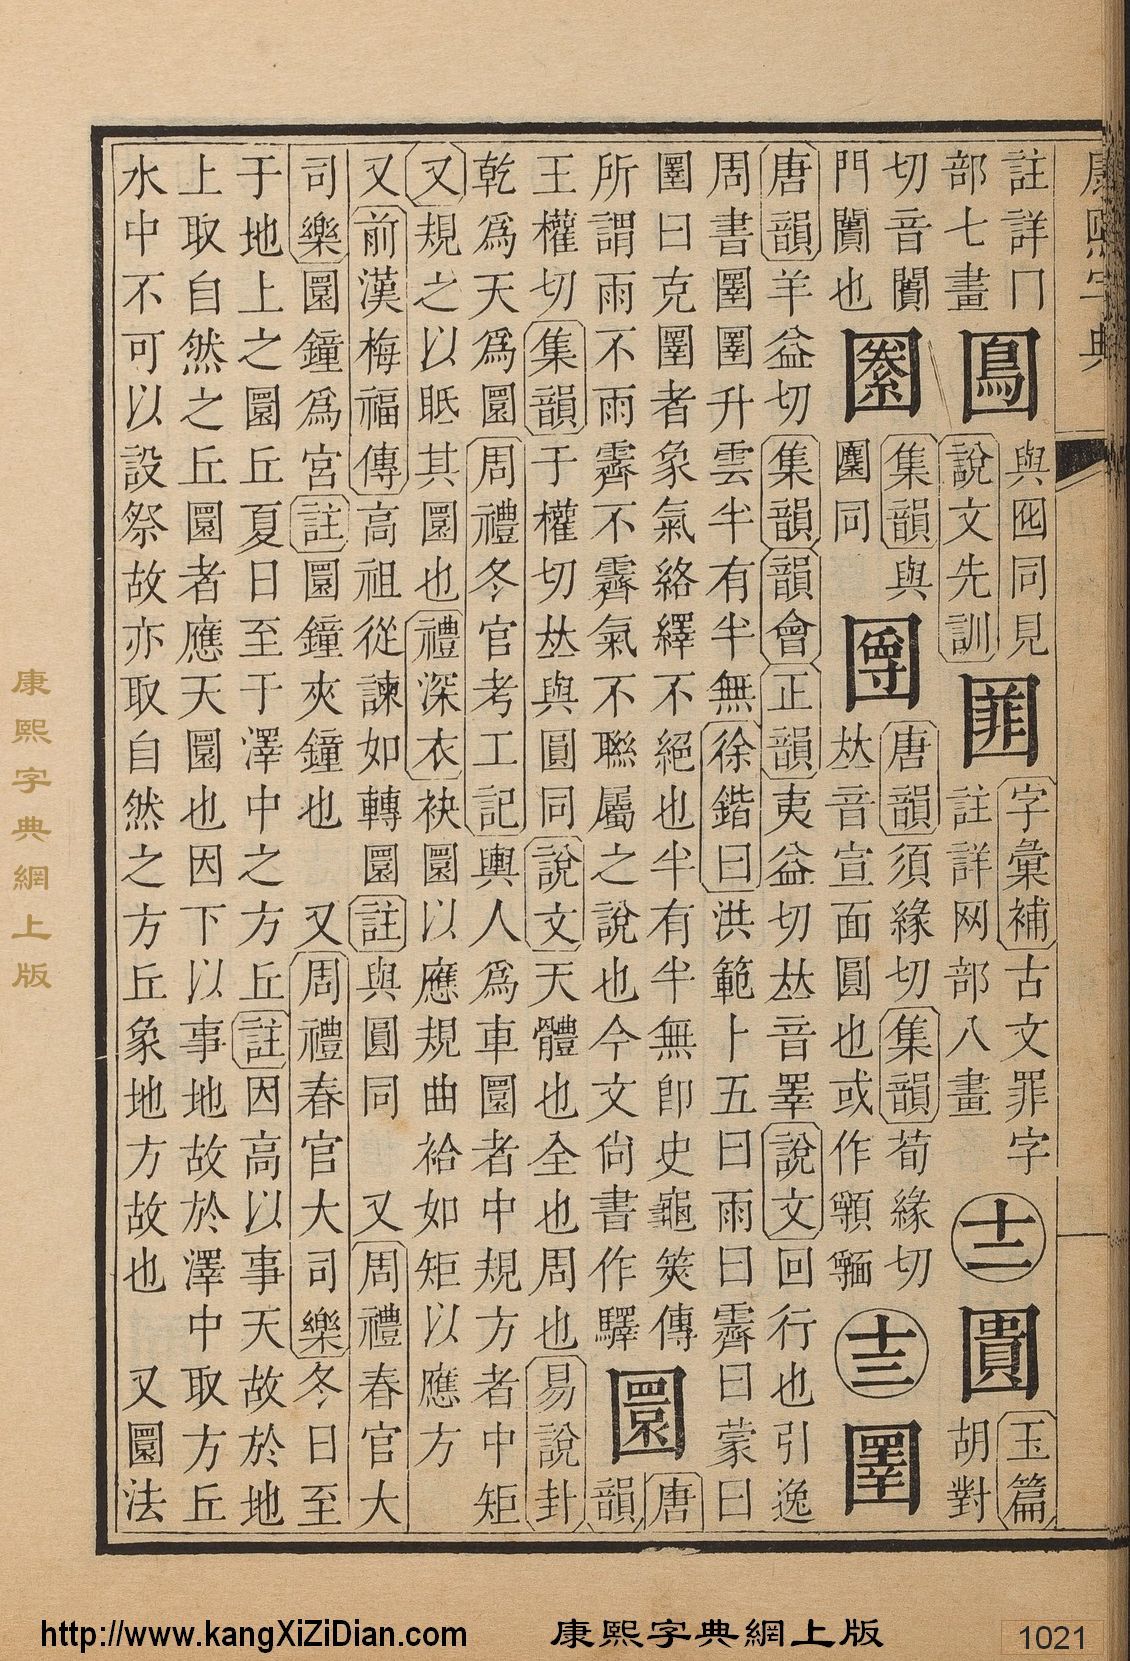 康熙字典
註詳冂
部七畫
與囮同見
說文先訓
字彙補古文罪字
註詳网部八畫
十二
圚
玉篇
胡對
切音闠
門闠也
集韻與
同
唐韻須緣切集韻荀緣切
𠀤音宣面圓也或作
十三
圛
唐韻羊益切集韻韻會正韻夷益切𠀤音睪說文回行也引逸
周書圛圛升雲半有半無徐鍇曰洪範卜五曰雨曰霽曰蒙曰
圛曰克圛者象氣絡繹不絕也半有半無卽史龜筴傳
所謂雨不雨霽不霽氣不聯屬之說也今文尙書作驛
圜
唐
韻
王權切集韻于權切𠀤與圓同說文天體也全也周也易說卦
乾爲天爲圜周禮冬官考工記輿人爲車圜者中規方者中矩
又規之以眂其圜也禮深衣袂圜以應規曲袷如矩以應方
又前漢梅福傳高祖從諫如轉圜註與圓同 又周禮春官大
司樂圜鐘爲宮註圜鐘夾鐘也 又周禮春官大司樂冬日至
于地上之圜丘夏日至于澤中之方丘註因高以事天故於地
上取自然之丘圜者應天圜也因下以事地故於澤中取方丘
水中不可以設祭故亦取自然之方丘象地方故也 又圜法
康熙字典網上版
http://www.kangXiZiDian.com
康熙字典網上版
1021